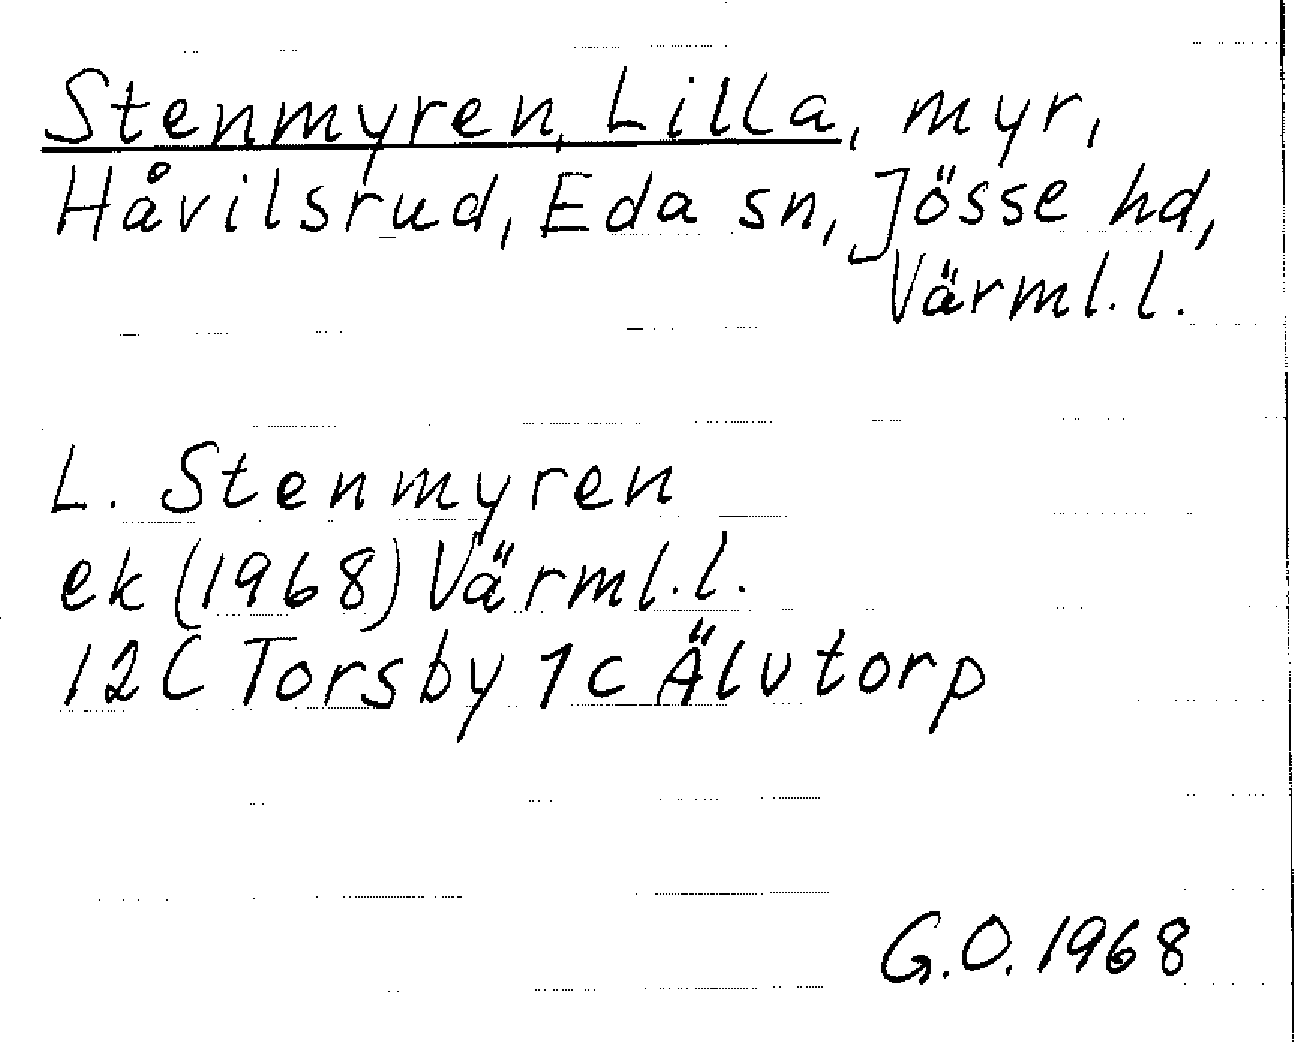 Stenmyren, Lilla, myr,
Håvilsrud, Eda sn, Jösse hd,
Värml.l.
L. Stenmyren
ek (1968) Värml.l.
12C Torsby 1c Älvtorp
G.O. 1968